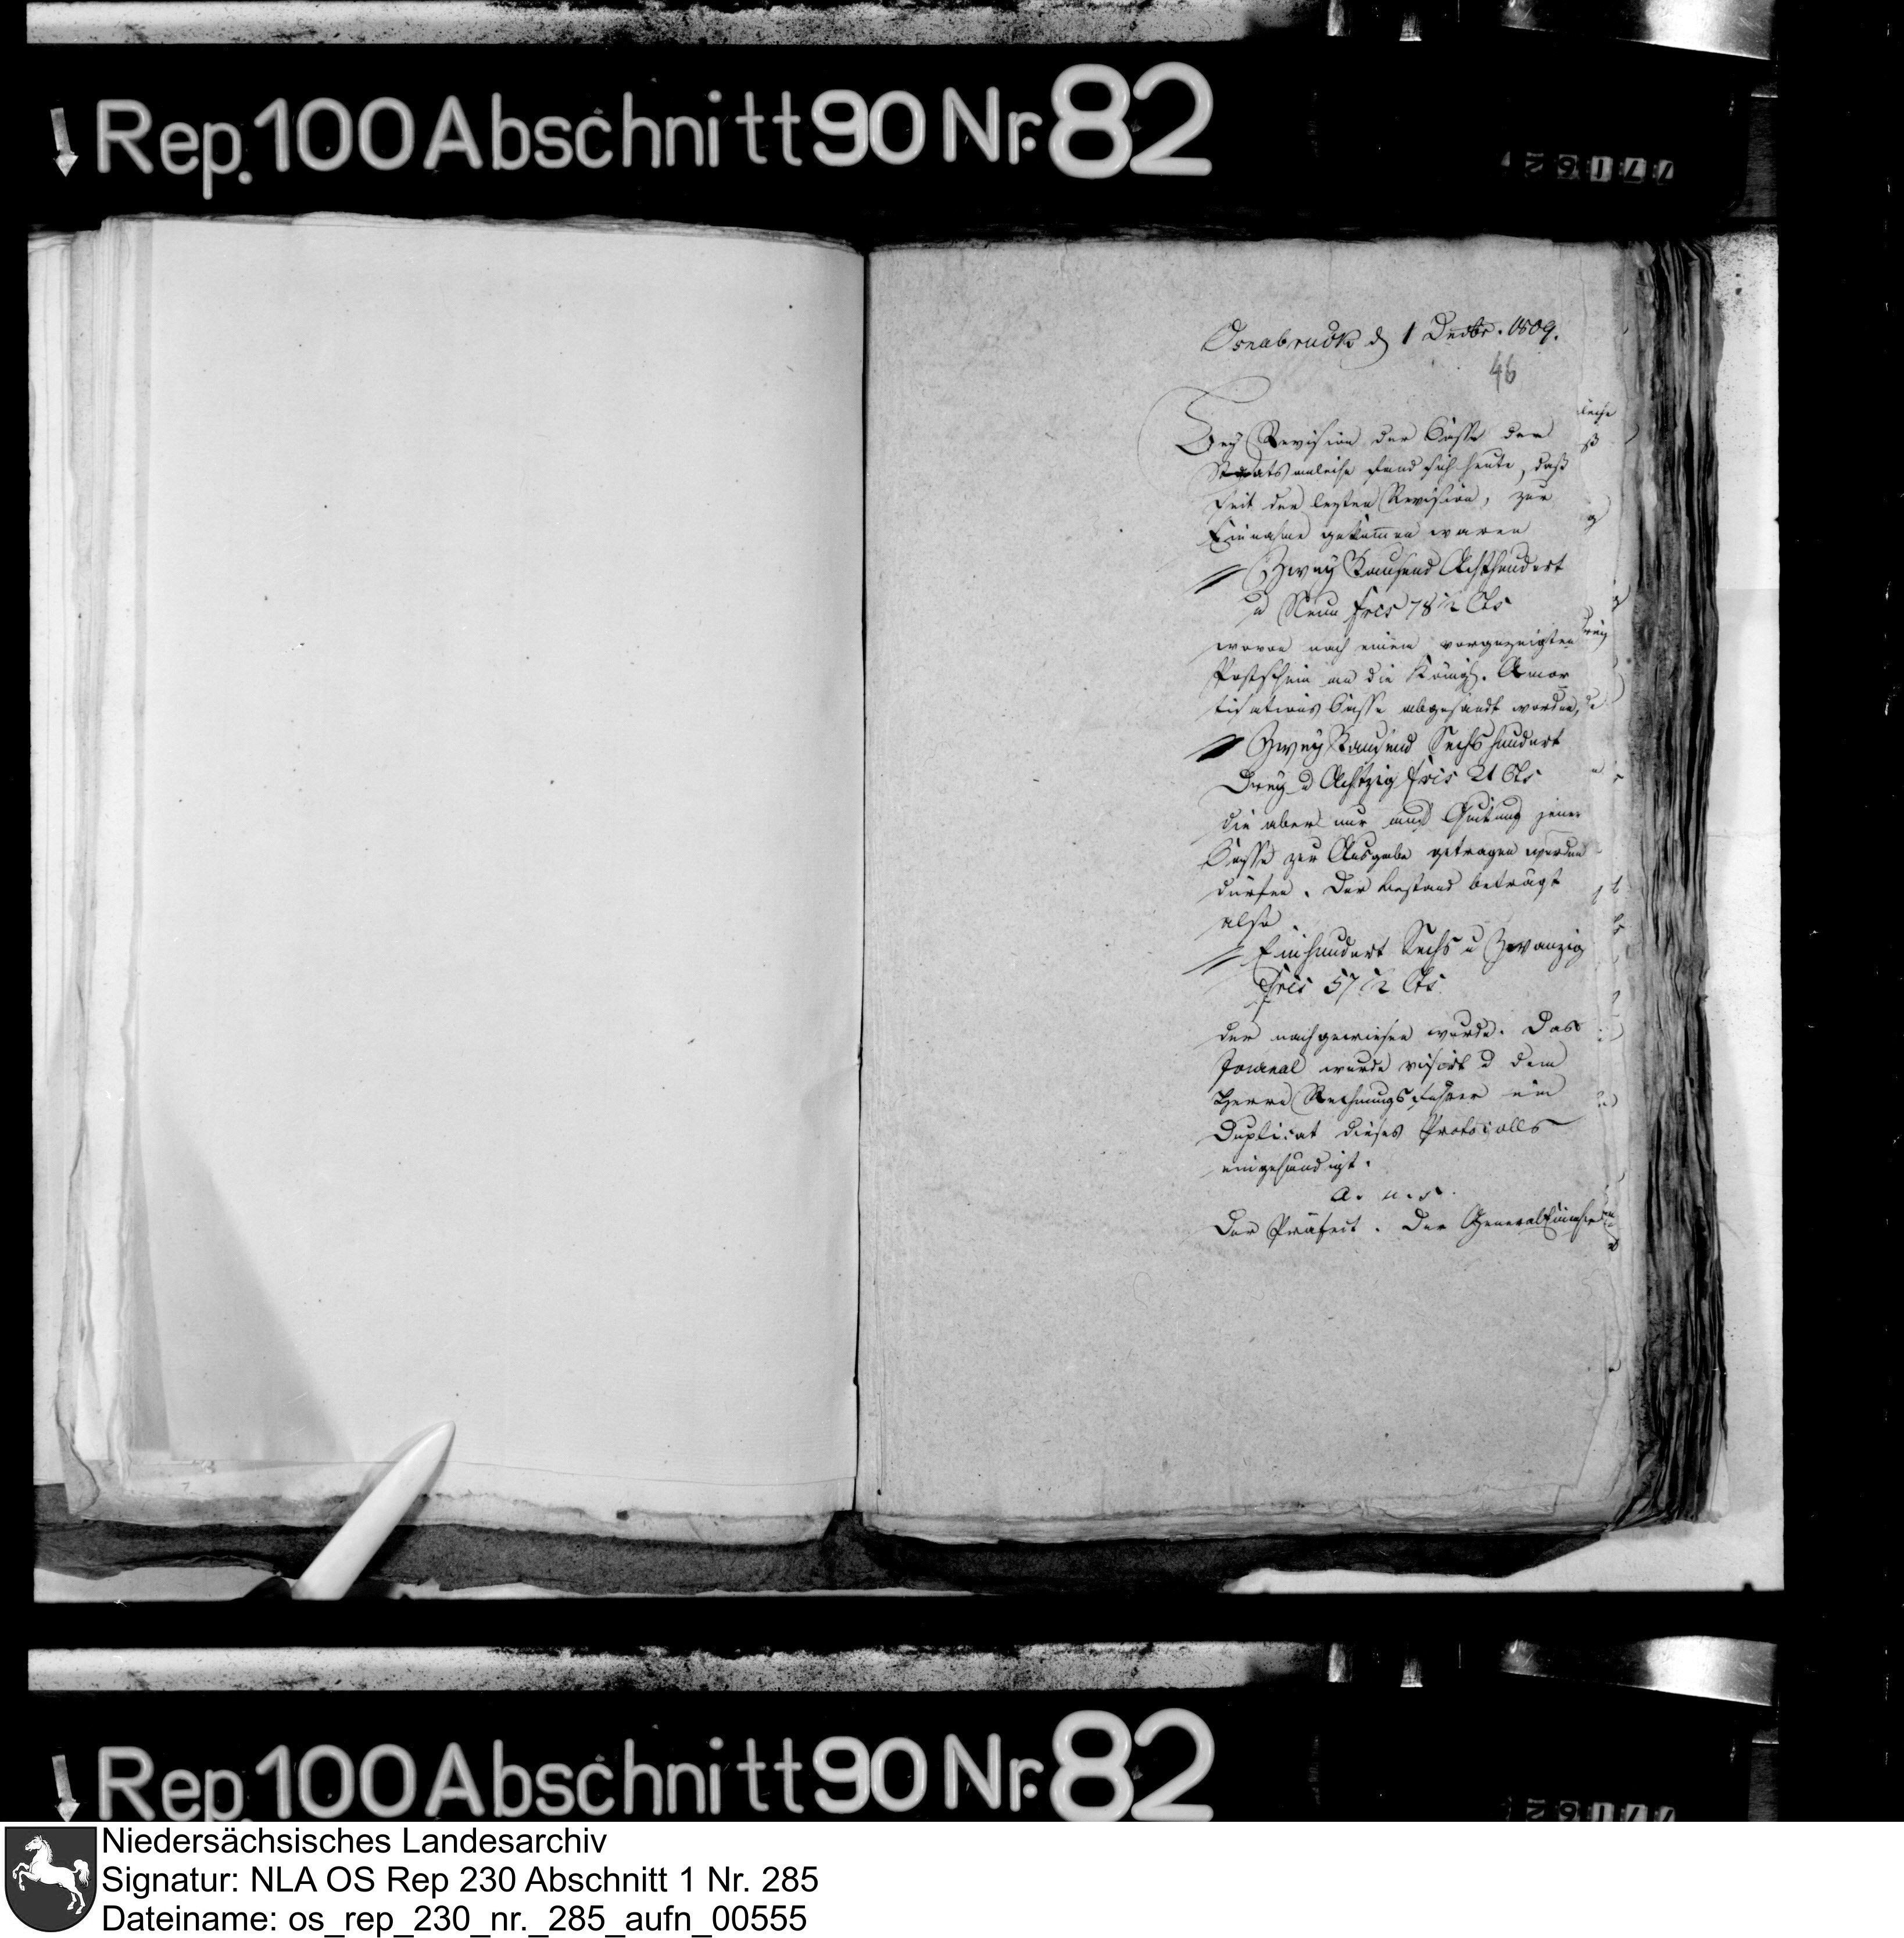 Rep. 100 Abschnitt 90 Nr. 82
Osnabruck d 1 Decbr. 1809.
46
Bey Revision der Casse der
Staatsanleihe fand sich heute, daß
seit der lezten Revision, zur
Einnahme gekommen waren
Zwey Tausend Achthundert
u Neun frcs 78 1/2 Cts
wovon nach einem vorgezeigten
Postschein an die Königl. Amor
tisations Casse abgesandt worden,
Zwey Tausend Sechshundert
Drey u Achtzig frcs 21 Cts
die aber nur auf Quitung jener
Casse zur Ausgabe getragen werden
dürfen. Der Bestand beträgt
also
Einhundert Sechs u Zwanzig
frcs 57 1/2 Cts
der nachgewiesen wurde. Das
Journal wurde visirt u dem
Herrn Rechnungsführer ein
Duplicat dieses Protocolls
eingehändigt.
a. u. s.
Der Präfect. Der Generaleinnehmer
Rep. 100 Abschnitt 90 Nr. 82
Niedersächsisches Landesarchiv
Signatur: NLA OS Rep 230 Abschnitt 1 Nr. 285
Dateiname: os_rep_230_nr._285_aufn_00555